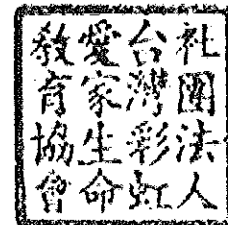 社團法人
台灣彩虹
愛家生命
教育協會